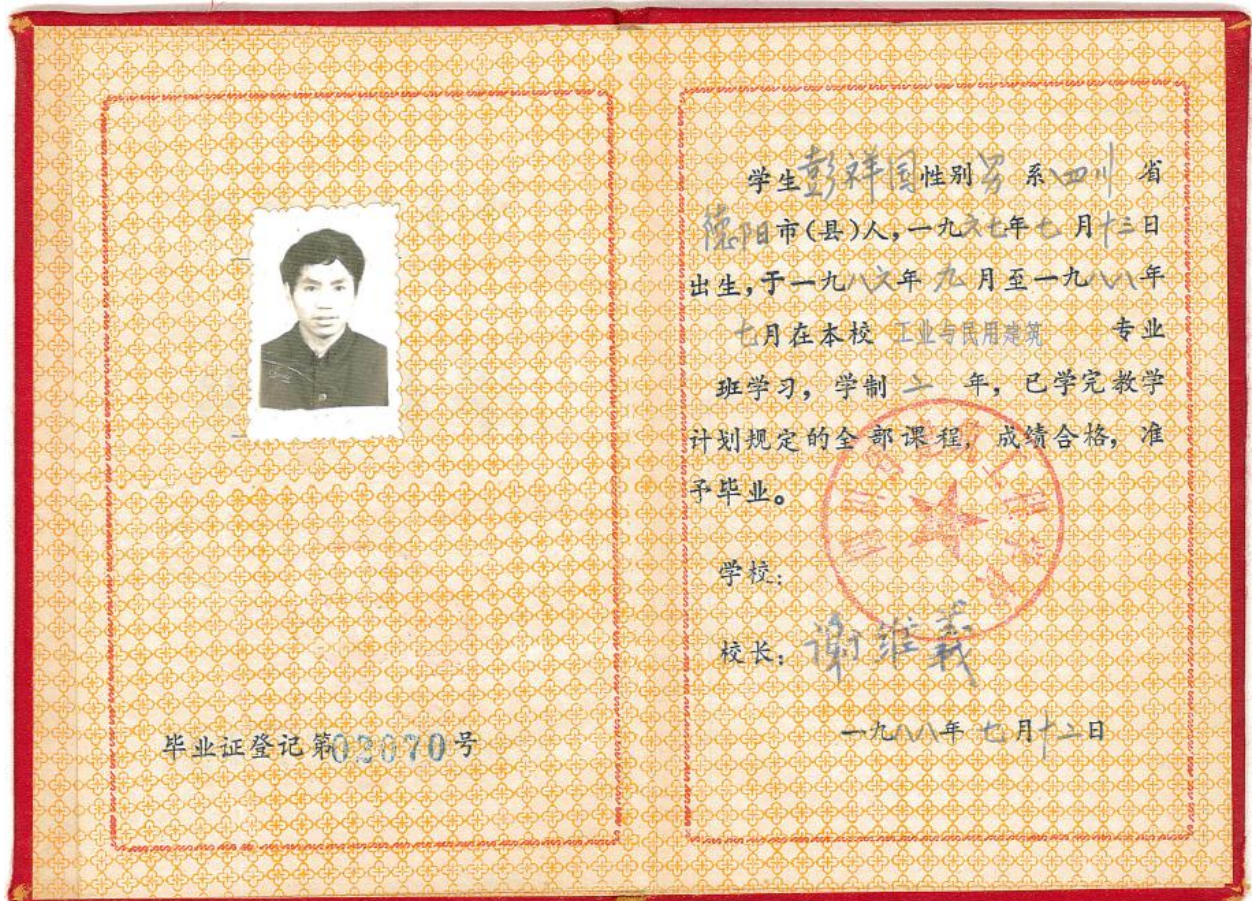 毕业证登记第02070号
学生彭祥国性别男系四川省
德阳市(县)人,一九六七年七月十三日
出生,于一九八六年九月至一九八八年
七月在本校工业与民用建筑专业
班学习,学制二年,已学完教学
计划规定的全部课程,成绩合格,准
予毕业。
四川省建筑工程学校
学校:
校长:谢维义
一九八八年七月十二日